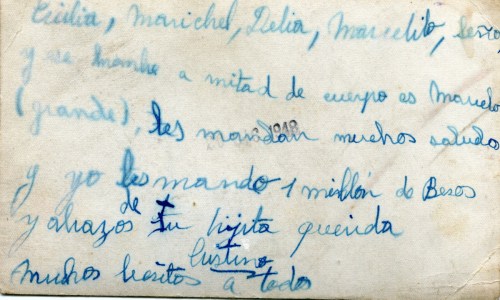 Cecilia, Marichel, Delia, Marcelito,
y ese hombre a mitad de cuerpo es Marcelo
(grande), les mandan muchos saludos
1948
y yo les mando 1 millón de Besos
y abrazos de tu hijita querida
Cristina
muchos besitos a todos